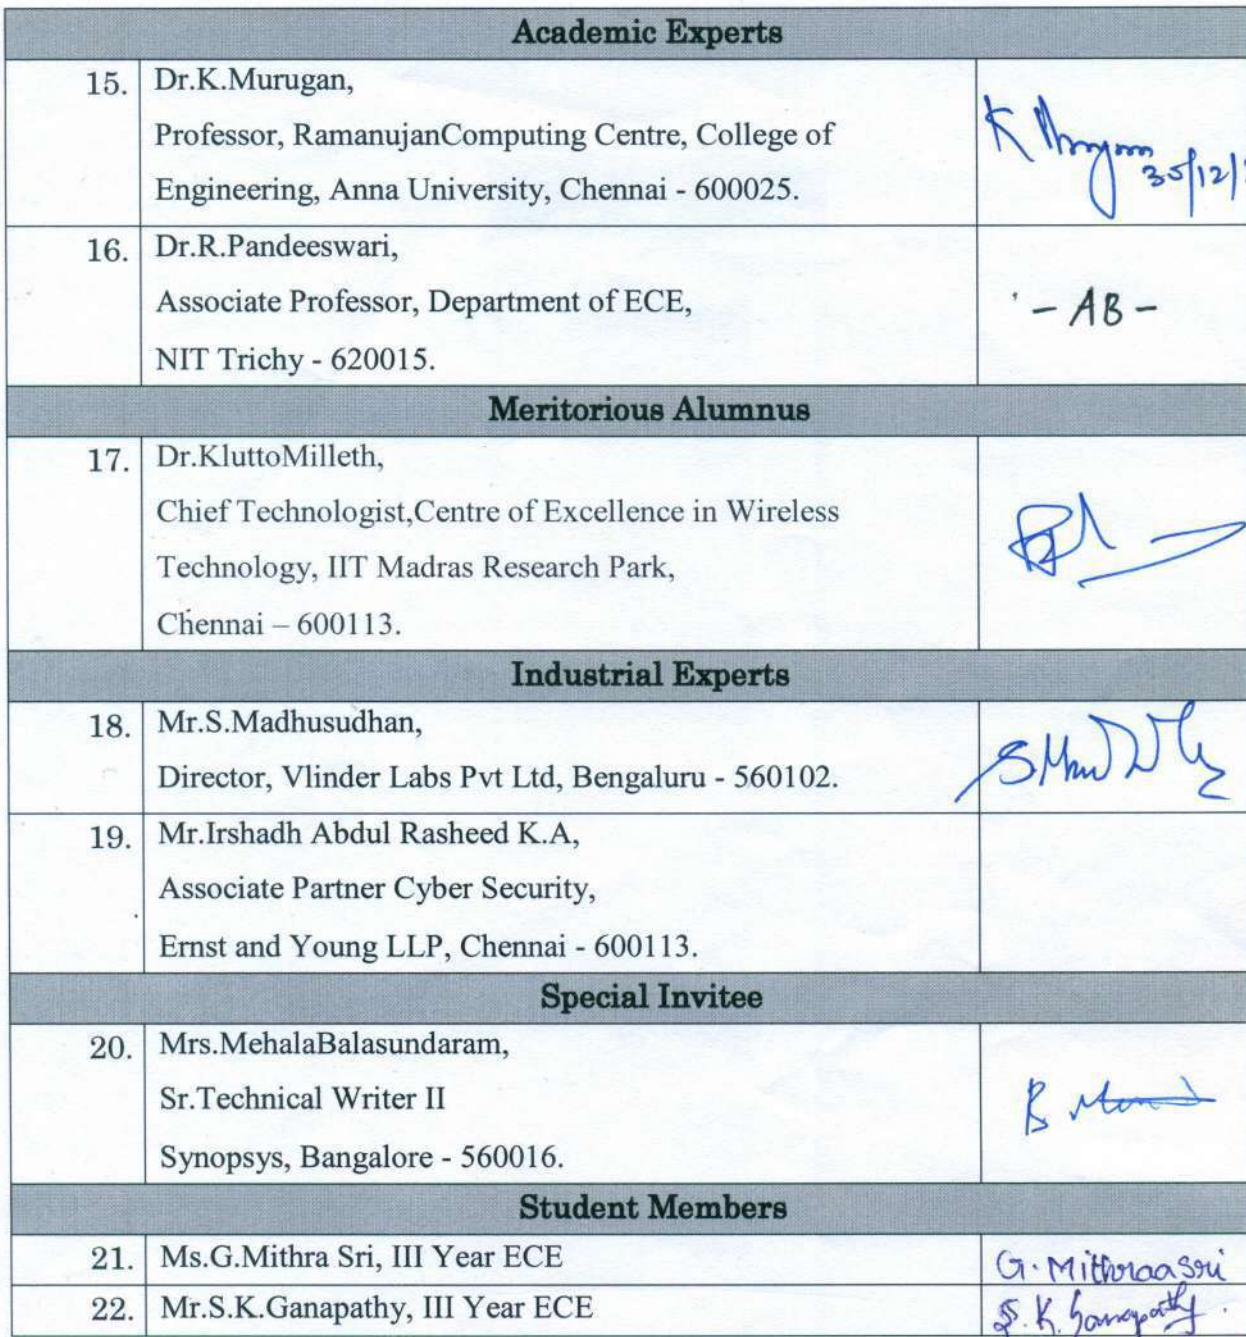 Academic Experts
15. Dr.K.Murugan,
Professor, RamanujanComputing Centre, College of
Engineering, Anna University, Chennai - 600025.
K Murugan
30/12/
16. Dr.R.Pandeeswari,
Associate Professor, Department of ECE,
NIT Trichy - 620015.
- AB -
Meritorious Alumnus
17. Dr.KluttoMilleth,
Chief Technologist,Centre of Excellence in Wireless
Technology, IIT Madras Research Park,
Chennai – 600113.
Industrial Experts
18. Mr.S.Madhusudhan,
Director, Vlinder Labs Pvt Ltd, Bengaluru - 560102.
19. Mr.Irshadh Abdul Rasheed K.A,
Associate Partner Cyber Security,
Ernst and Young LLP, Chennai - 600113.
Special Invitee
20. Mrs.MehalaBalasundaram,
Sr.Technical Writer II
Synopsys, Bangalore - 560016.
Student Members
21. Ms.G.Mithra Sri, III Year ECE
G. Mithraa Sri
22. Mr.S.K.Ganapathy, III Year ECE
S. K. Ganapathy.